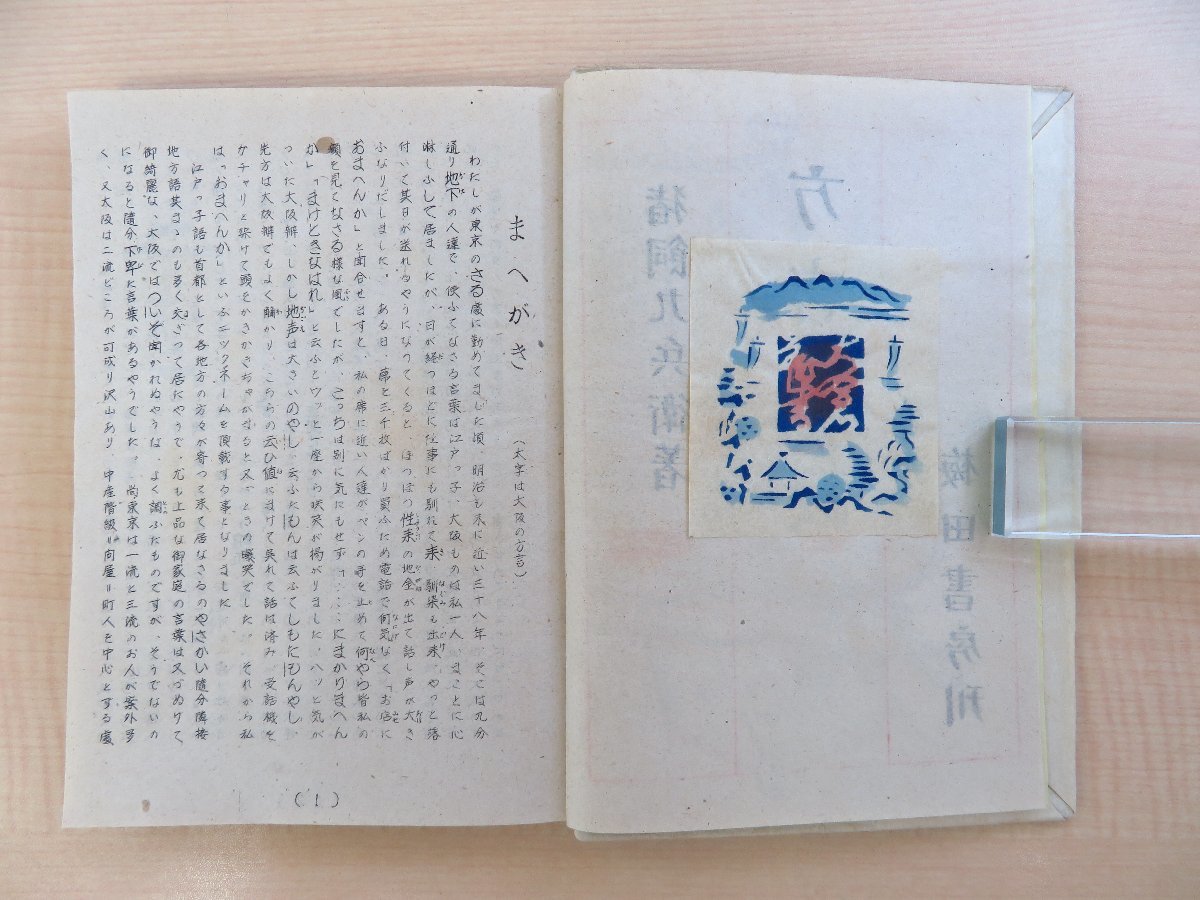 方
猪飼九兵衛著
梅田書房刊
まへがき
(太字は大阪の方言)
わたしが東京のさる處に勤めてました頃、明治も末に近い三十八年、そこは九分
通り地下の人達で、使ふてなさる言葉は江戸っ子、大阪ものは私一人、まことに心
淋しふして居ましたが、日が經つほどに仕事にも馴れて来、馴染も出来、やっと落
付いて其日が送れるやうになってくると、ほつほつ性来の地金が出て話し声が大き
ふなりだしました。ある日、蓆を三千枚ばかり買ふため電話で何気なく「お店に
おまへんか」と問合せますと、私の席に近い人達がペンの手を止めて何やら皆私の
顔を見てなさる様な風でしたが、こっちは別に気にもせず「……にまかりまへん
か」「まけときなはれ」と云ふとワッと一座から哄笑が揚がりました、ハッと気が
ついた大阪辯、しかし地声は大さいのやし、云ふたもんは云ふてしもたもんやし、
先方は大阪辯でもよく解かり、こちらの云ひ値にまけて呉れて話は済み、受話機を
ガチャリと掛けて頭をかきかきちゃがなると又どっときの爆笑でした。それから私
は「おまへんか」といふニックネームを頂戴する事となりました
江戸っ子語も首都として各地方の方々が寄って来て居なさるのやさかい隨分隣接
地方語其まゝのも多く交ざって居たやうで、尤も上品な御家庭の言葉は又づぬけて
御綺麗な、大阪ではついぞ聞かれぬやうな、よく調ふたものですが、そうでないの
になると隨分下卑た言葉があるやうでした。尚東京は一流と三流のお人が案外多
く、又大阪は二流どころが可成り沢山あり、中産階級=問屋=町人を中心とする處
(1)